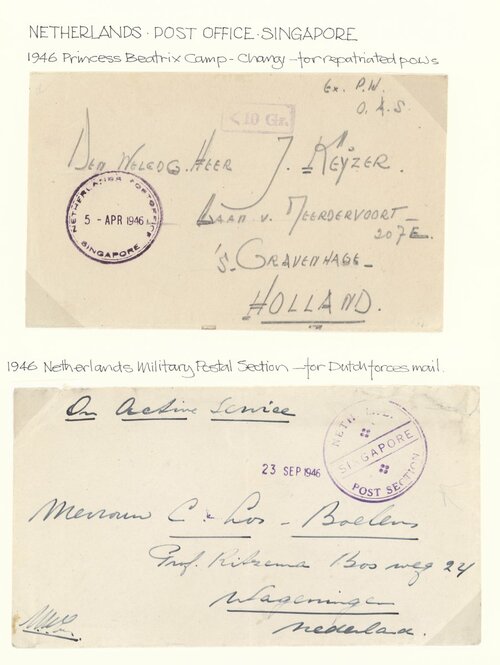 NETHERLANDS · POST OFFICE · SINGAPORE
1946 Princess Beatrix Camp - Changi - for repatriated POWs
Ex. P.W.
O.A.S.
< 10 Gr.
DEN WELEDG. HEER J. KEYZER.
NETHERLANDS POSTOFFICE
5 - APR 1946
SINGAPORE
LAAN V. MEERDERVOORT
207E.
'S-GRAVENHAGE
HOLLAND.
1946 Netherlands Military Postal Section - for Dutch forces mail.
On Active Service
NETH.
SINGAPORE
POST SECTION
23 SEP 1946
Mevrouw C. Los - Boelens
Prof. Ritzema Bos weg 24
Wageningen
Nederland.